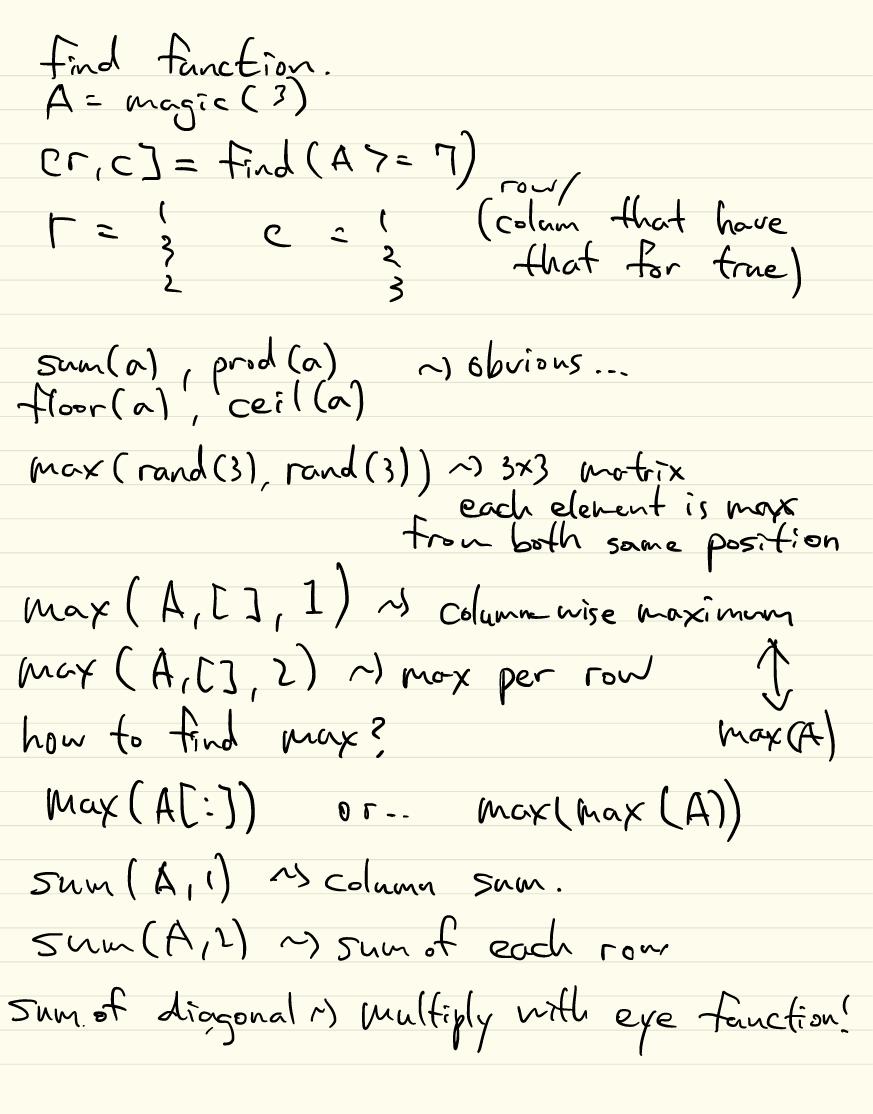 find function.
A = magic(3)
[r,c] = find(A >= 7)
r = 1 c = 1 row/
3 2 (colum that have
2 3 that for true)
sum(a), prod(a) ~> obvious...
floor(a), ceil(a)
max(rand(3), rand(3)) ~> 3x3 matrix
each element is max
from both same position
max(A,[],1) ~> column-wise maximum
max(A,[],2) ~> max per row ↕
how to find max? max(A)
max(A[:]) or.. max(max(A))
sum(A,1) ~> column sum.
sum(A,2) ~> sum of each row
sum of diagonal ~> multiply with eye function!